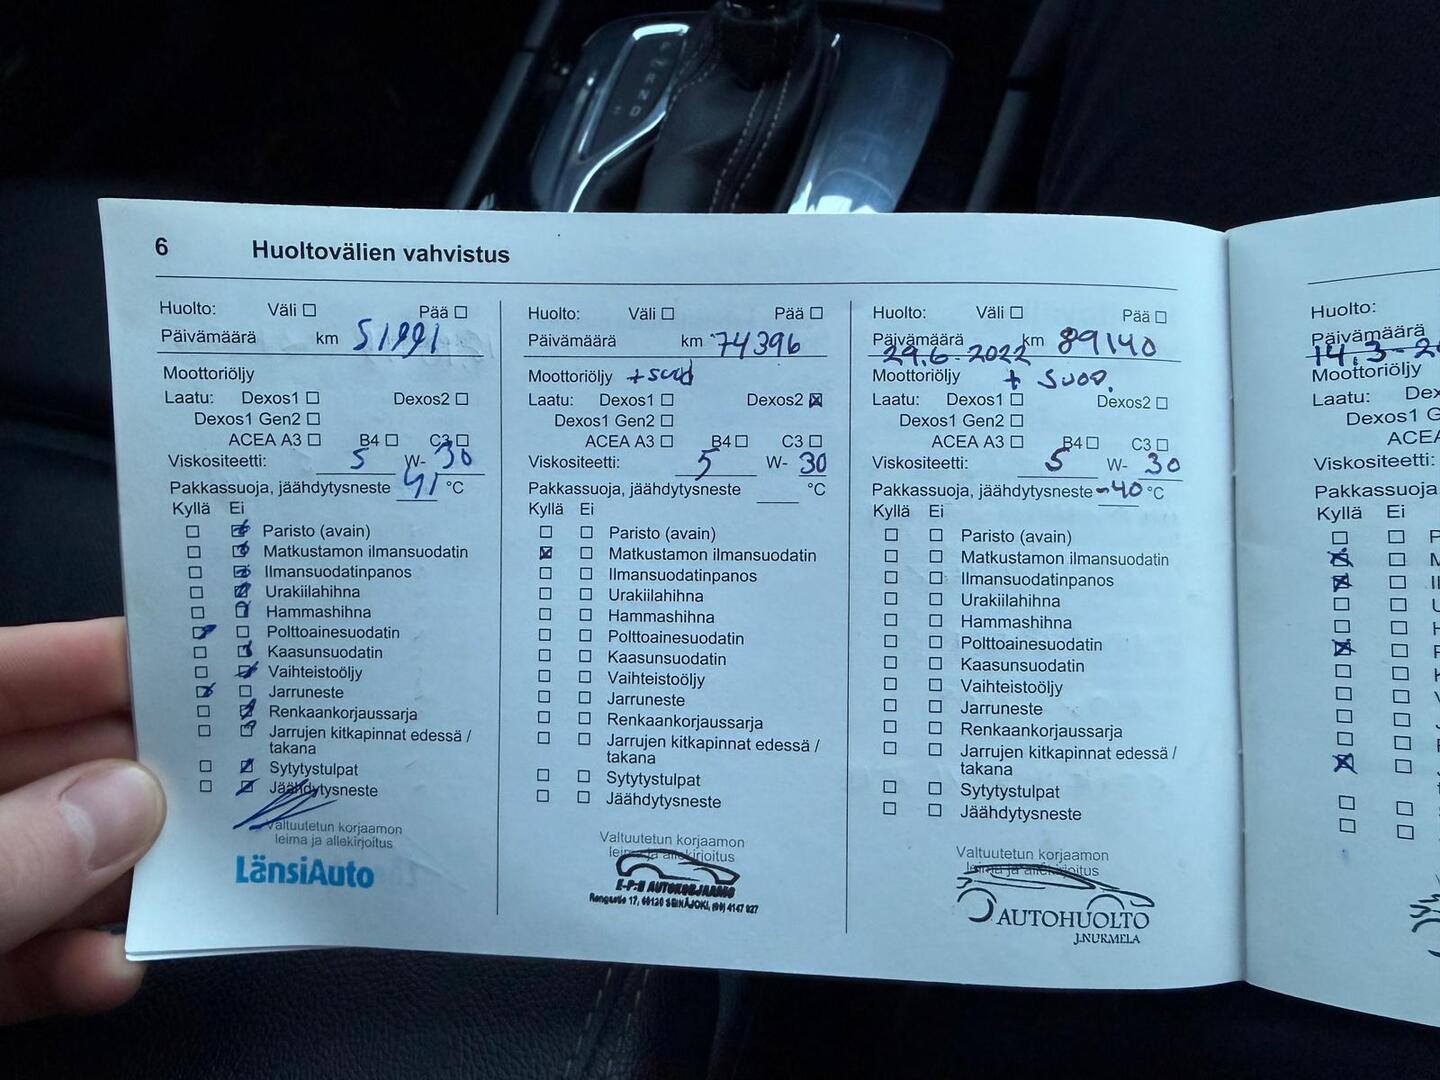 P R N D
6 Huoltovälien vahvistus
Huolto: Väli ☐ Pää ☐
Päivämäärä km 51991
Moottoriöljy
Laatu: Dexos1 ☐ Dexos2 ☐
Dexos1 Gen2 ☐
ACEA A3 ☐ B4 ☐ C3 ☐
Viskositeetti: 5 W- 30
Pakkassuoja, jäähdytysneste 41 °C
Kyllä Ei
Paristo (avain)
Matkustamon ilmansuodatin
Ilmansuodatinpanos
Urakiilahihna
Hammashihna
Polttoainesuodatin
Kaasunsuodatin
Vaihteistoöljy
Jarruneste
Renkaankorjaussarja
Jarrujen kitkapinnat edessä /
takana
Sytytystulpat
Jäähdytysneste
Valtuutetun korjaamon
leima ja allekirjoitus
LänsiAuto
Huolto: Väli ☐ Pää ☐
Päivämäärä km 74396
Moottoriöljy + suod
Laatu: Dexos1 ☐ Dexos2 ☒
Dexos1 Gen2 ☐
ACEA A3 ☐ B4 ☐ C3 ☐
Viskositeetti: 5 W- 30
Pakkassuoja, jäähdytysneste °C
Kyllä Ei
Paristo (avain)
Matkustamon ilmansuodatin
Ilmansuodatinpanos
Urakiilahihna
Hammashihna
Polttoainesuodatin
Kaasunsuodatin
Vaihteistoöljy
Jarruneste
Renkaankorjaussarja
Jarrujen kitkapinnat edessä /
takana
Sytytystulpat
Jäähdytysneste
Valtuutetun korjaamon
leima ja allekirjoitus
E-P:N AUTOKORJAAMO
17, 60120 SEINÄJOKI, 4147 927
Huolto: Väli ☐ Pää ☐
Päivämäärä km 89140
29.6-2022
Moottoriöljy + suod.
Laatu: Dexos1 ☐ Dexos2 ☐
Dexos1 Gen2 ☐
ACEA A3 ☐ B4 ☐ C3 ☐
Viskositeetti: 5 W- 30
Pakkassuoja, jäähdytysneste -40 °C
Kyllä Ei
Paristo (avain)
Matkustamon ilmansuodatin
Ilmansuodatinpanos
Urakiilahihna
Hammashihna
Polttoainesuodatin
Kaasunsuodatin
Vaihteistoöljy
Jarruneste
Renkaankorjaussarja
Jarrujen kitkapinnat edessä /
takana
Sytytystulpat
Jäähdytysneste
Valtuutetun korjaamon
leima ja allekirjoitus
AUTOHUOLTO
J.NURMELA
Huolto:
Päivämäärä
14.3-2
Moottoriöljy
Laatu: Dex
Dexos1 G
ACEA
Viskositeetti:
Pakkassuoja,
Kyllä Ei